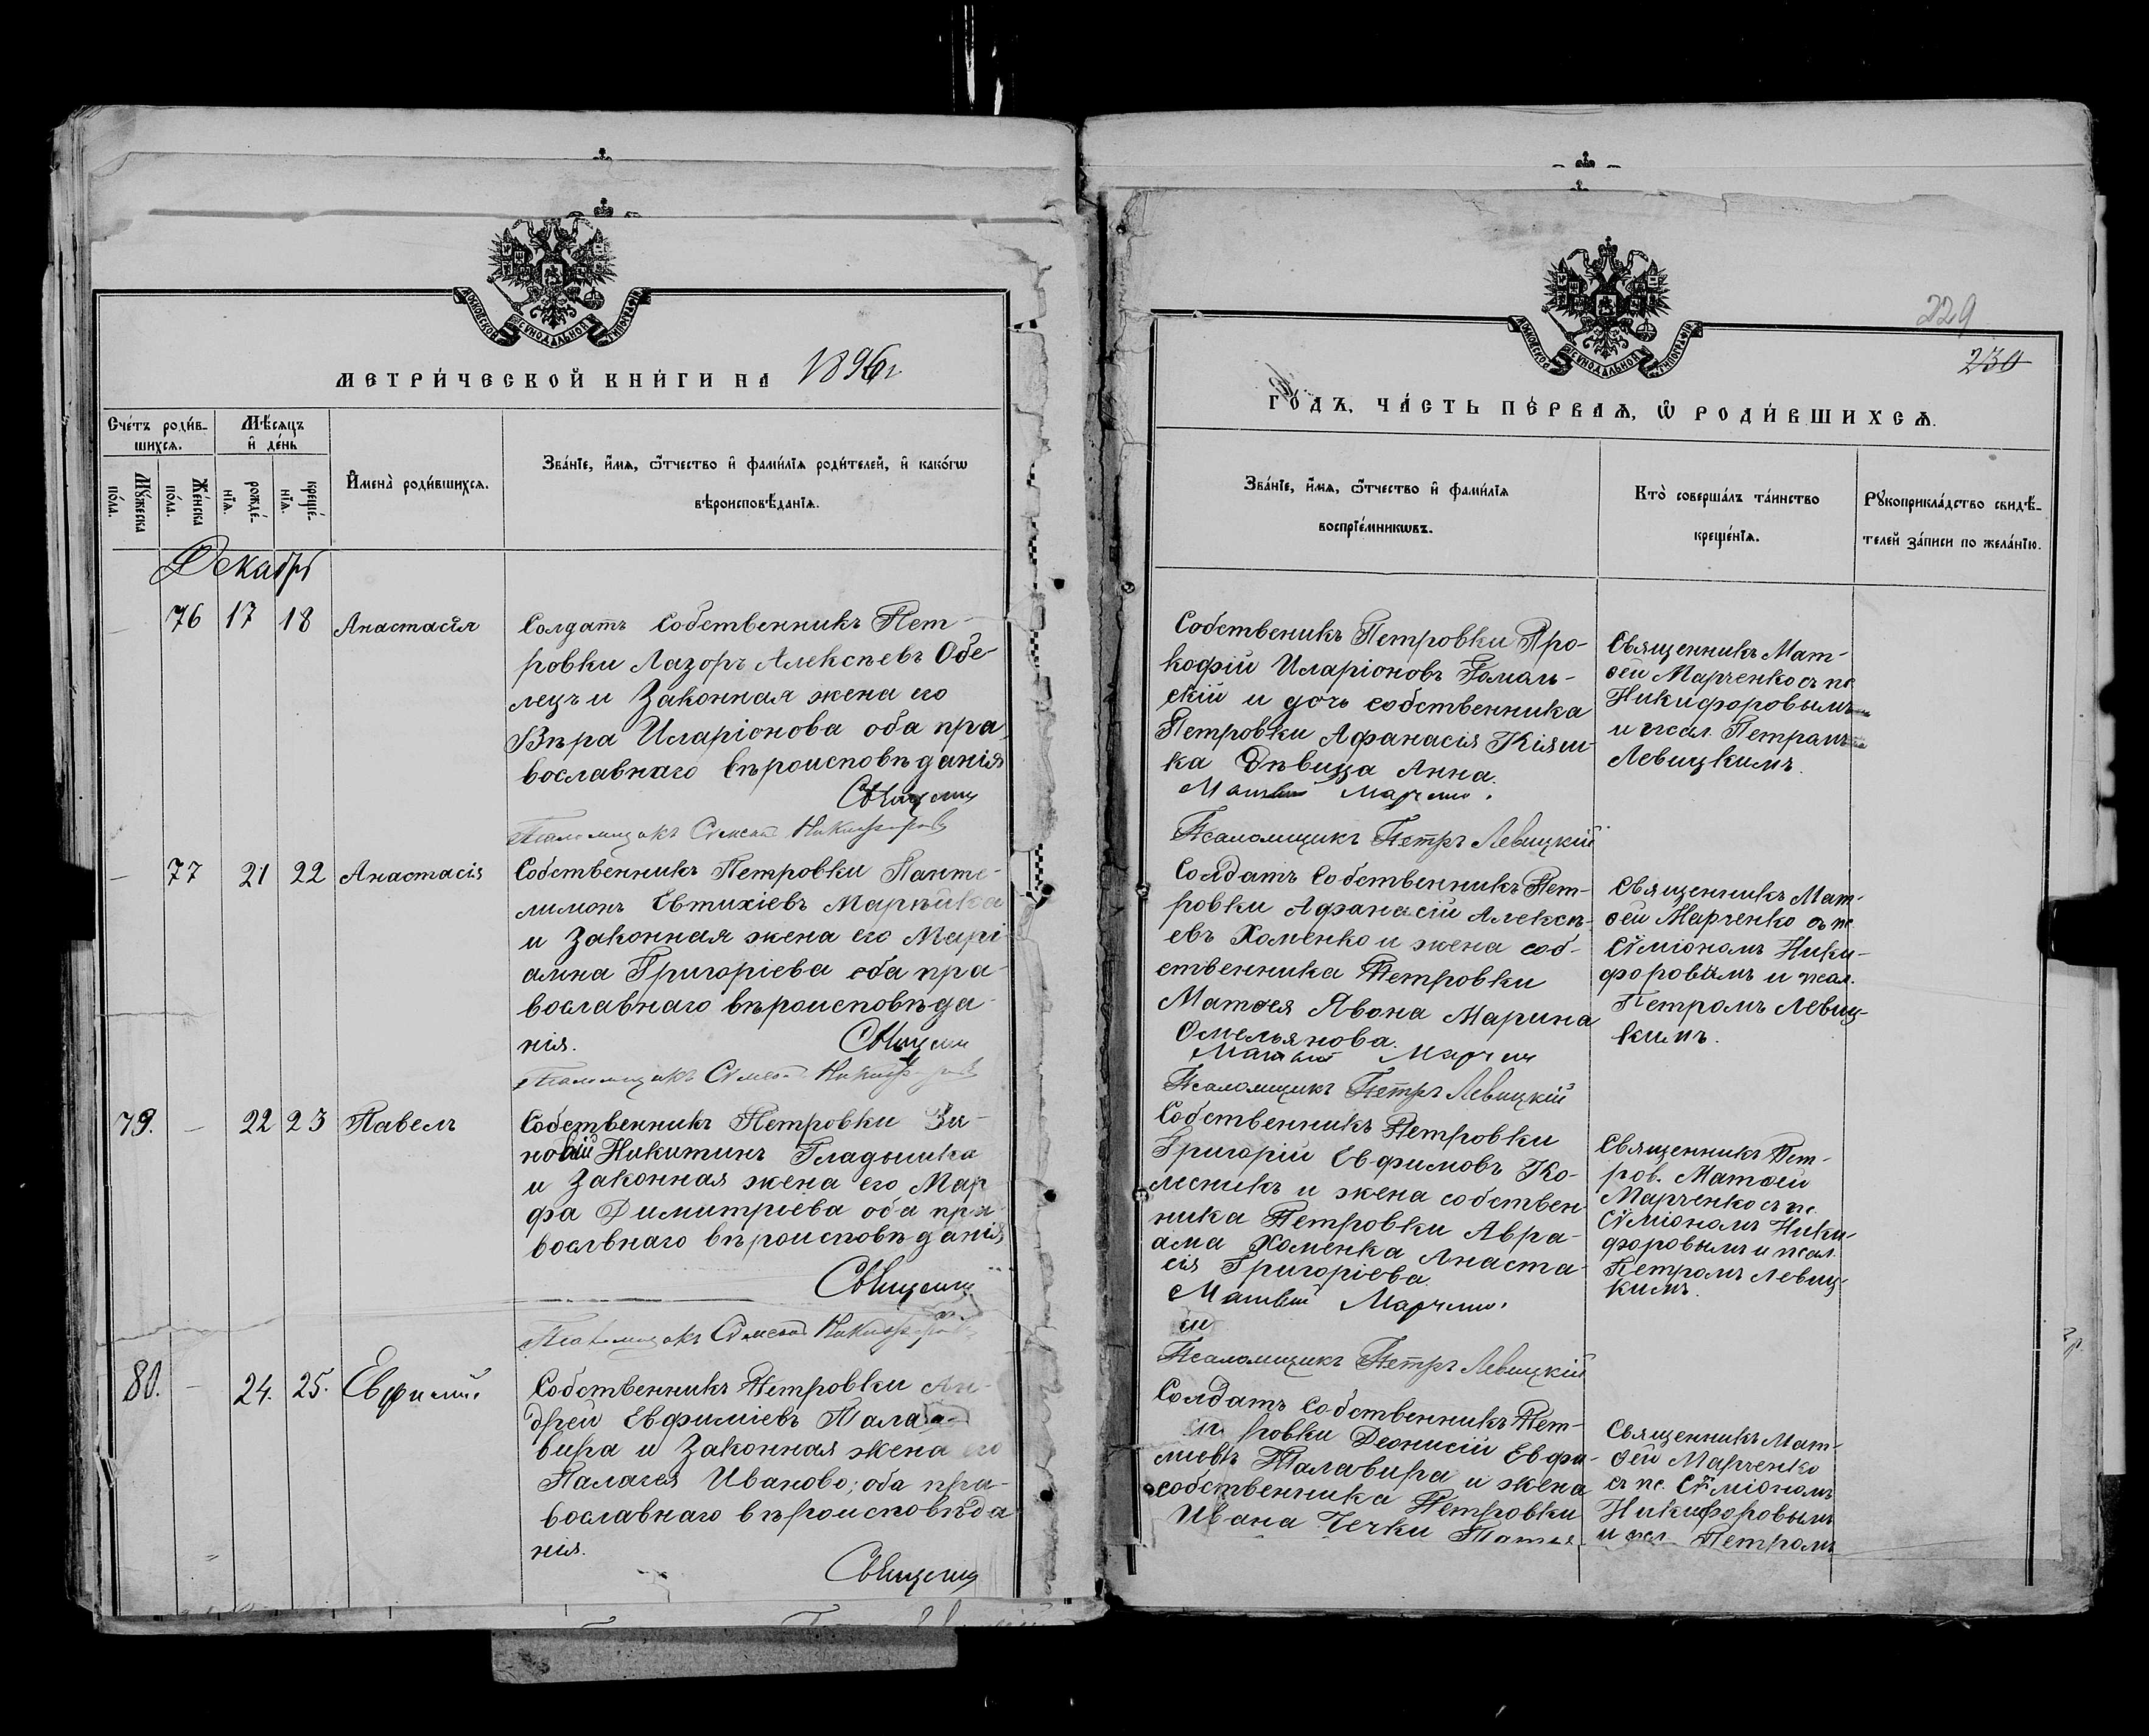 МОСКОВСКОЙ СѴНОДАЛЬНОЙ ТИПОГРАФІИ
МЕТРИ́ЧЕСКОЙ КНИ́ГИ НА 1896 г.
Сче́тъ роди́в-
шихся.
Мѣ́сяцъ
и де́нь
Мꙋ́жеска
по́ла.
Же́нска
по́ла.
рожде́-
нїя.
креще́-
нїя.
И҆мена̀ роди́вшихся.
Зва́нїе, и҆́мя, ѻ҆́тчество и҆ фами́лїя роди́телей, и҆ како́гѡ
вѣроисповѣ́данїя.
Декабрь
76 17 18 Анастасія
Солдатъ Собственникъ Пет-
ровки Лазоръ Алексѣевъ Обе-
лецъ и Законная жена его
Вѣра Иларіонова оба пра
вославнаго вѣроисповѣданія
Священи
Псаломщикъ Сѵмеонъ Никифоровъ
— 77 21 22 Анастасія
Собственникъ Петровки Панте-
лимонъ Евтихіевъ
и Законная жена его Марі
амна Григоріева оба пра-
вославнаго вѣроисповѣда-
нія.
Священи
Псаломщикъ Сѵмеонъ Никифоровъ
79. — 22 23 Павелъ
Собственникъ Петровки Зи-
новій Никитинъ Гладышка
и Законная жена его Мар
фа Димитріева оба пра-
вославнаго вѣроисповѣданія
Священи
Псаломщикъ Сѵмеонъ Никифоровъ
80. — 24. 25. Евфимій
Собственникъ Петровки Ан-
дрей Евфиміевъ Пала
вира и Законная жена его
Палагея Иваново; оба пра-
вославнаго вѣроисповѣда
нія.
Священи
229
230
МОСКОВСКОЙ СѴНОДАЛЬНОЙ ТИПОГРАФІИ
ГО́ДЪ, ЧА́СТЬ ПЕ́РВАЯ, Ѡ҆ РОДИ́ВШИХСЯ.
Зва́нїе, и҆́мя, ѻ҆́тчество и҆ фами́лїя
воспрїе́мникѡвъ.
Кто̀ соверша́лъ та́инство
креще́нїя.
Рꙋкоприкла́дство свидѣ́-
телей за́писи по жела́нїю.
Собственикъ Петровки Про-
кофій Иларіоновъ Роман-
скій и дочь собственника
Петровки Афанасія Кіяш-
ка Дѣвица Анна.
Матвій Марченко.
Псаломщикъ Петръ Левицкій
Священникъ Мат-
ѳей Марченко съ пс
Никифоровымъ
и псал. Петромъ
Левицкимъ.
Солдатъ Собственникъ Пет-
ровки Афанасій Алексѣ-
евъ Хоменко и жена соб-
ственника Петровки
Матѳея Явона Марина
Омельянова.
Матвій Марченко
Псаломщикъ Петръ Левицкій
Священникъ Мат-
ѳей Марченко съ пс
Сѵміономъ Ники-
форовымъ и псал.
Петромъ Левиц-
кимъ.
Собственникъ Петровки
Григорій Евфимовъ Ко-
лесникъ и жена собствен
ника Петровки Авра-
ама Хоменка Анаста-
сія Григоріева.
Матвій Марченко.
Псаломщикъ Петръ Левицкій
Священникъ Пет-
ров. Матѳей
Марченко съ пс.
Сѵміономъ Ники-
форовымъ и псал.
Петромъ Левиц-
кимъ.
Солдатъ Собственникъ Пет-
ровки Деонисій Евфи-
міевъ Палавира и жена
собственника Петровки
Ивана Чечки
Священникъ Мат-
ѳей Марченко
съ пс. Сѵміономъ
Никифоровымъ
и псл. Петромъ